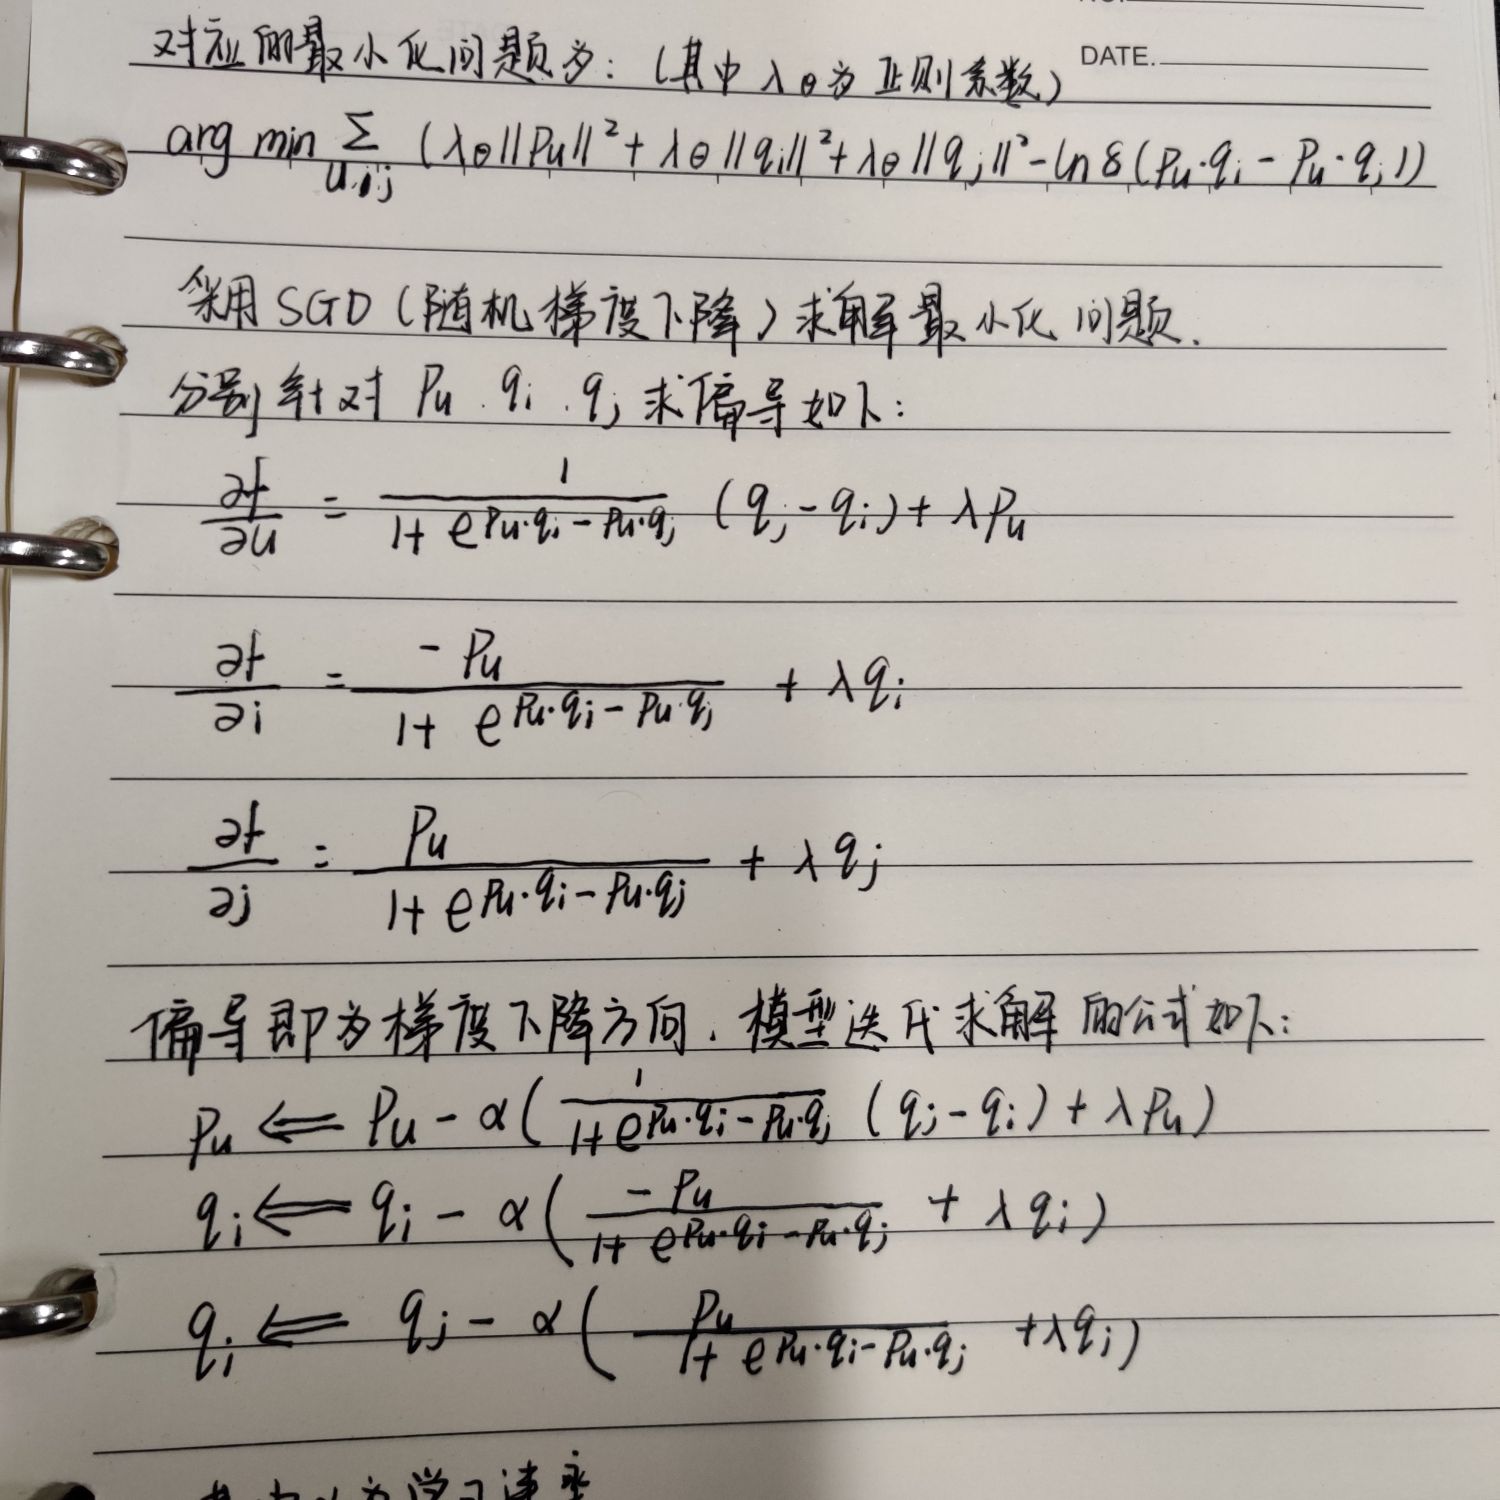 NO.
DATE.
对应的最小化问题为：（其中λθ为正则系数）
arg min Σ (λθ||Pu||² + λθ||qi||² + λθ||qj||² - ln δ(Pu·qi - Pu·qj))
u,i,j
采用SGD（随机梯度下降）求解最小化问题.
分别针对 Pu . qi . qj 求偏导如下：
∂f/∂u = 1/(1+e^(Pu·qi-Pu·qj)) (qj-qi) + λPu
∂f/∂i = -Pu/(1+e^(Pu·qi-Pu·qj)) + λqi
∂f/∂j = Pu/(1+e^(Pu·qi-Pu·qj)) + λqj
偏导即为梯度下降方向，模型迭代求解的公式如下：
Pu ⇐ Pu - α(1/(1+e^(Pu·qi-Pu·qj)) (qj-qi) + λPu)
qi ⇐ qi - α(-Pu/(1+e^(Pu·qi-Pu·qj)) + λqi)
qi ⇐ qj - α(Pu/(1+e^(Pu·qi-Pu·qj)) + λqi)
其中α为学习速率